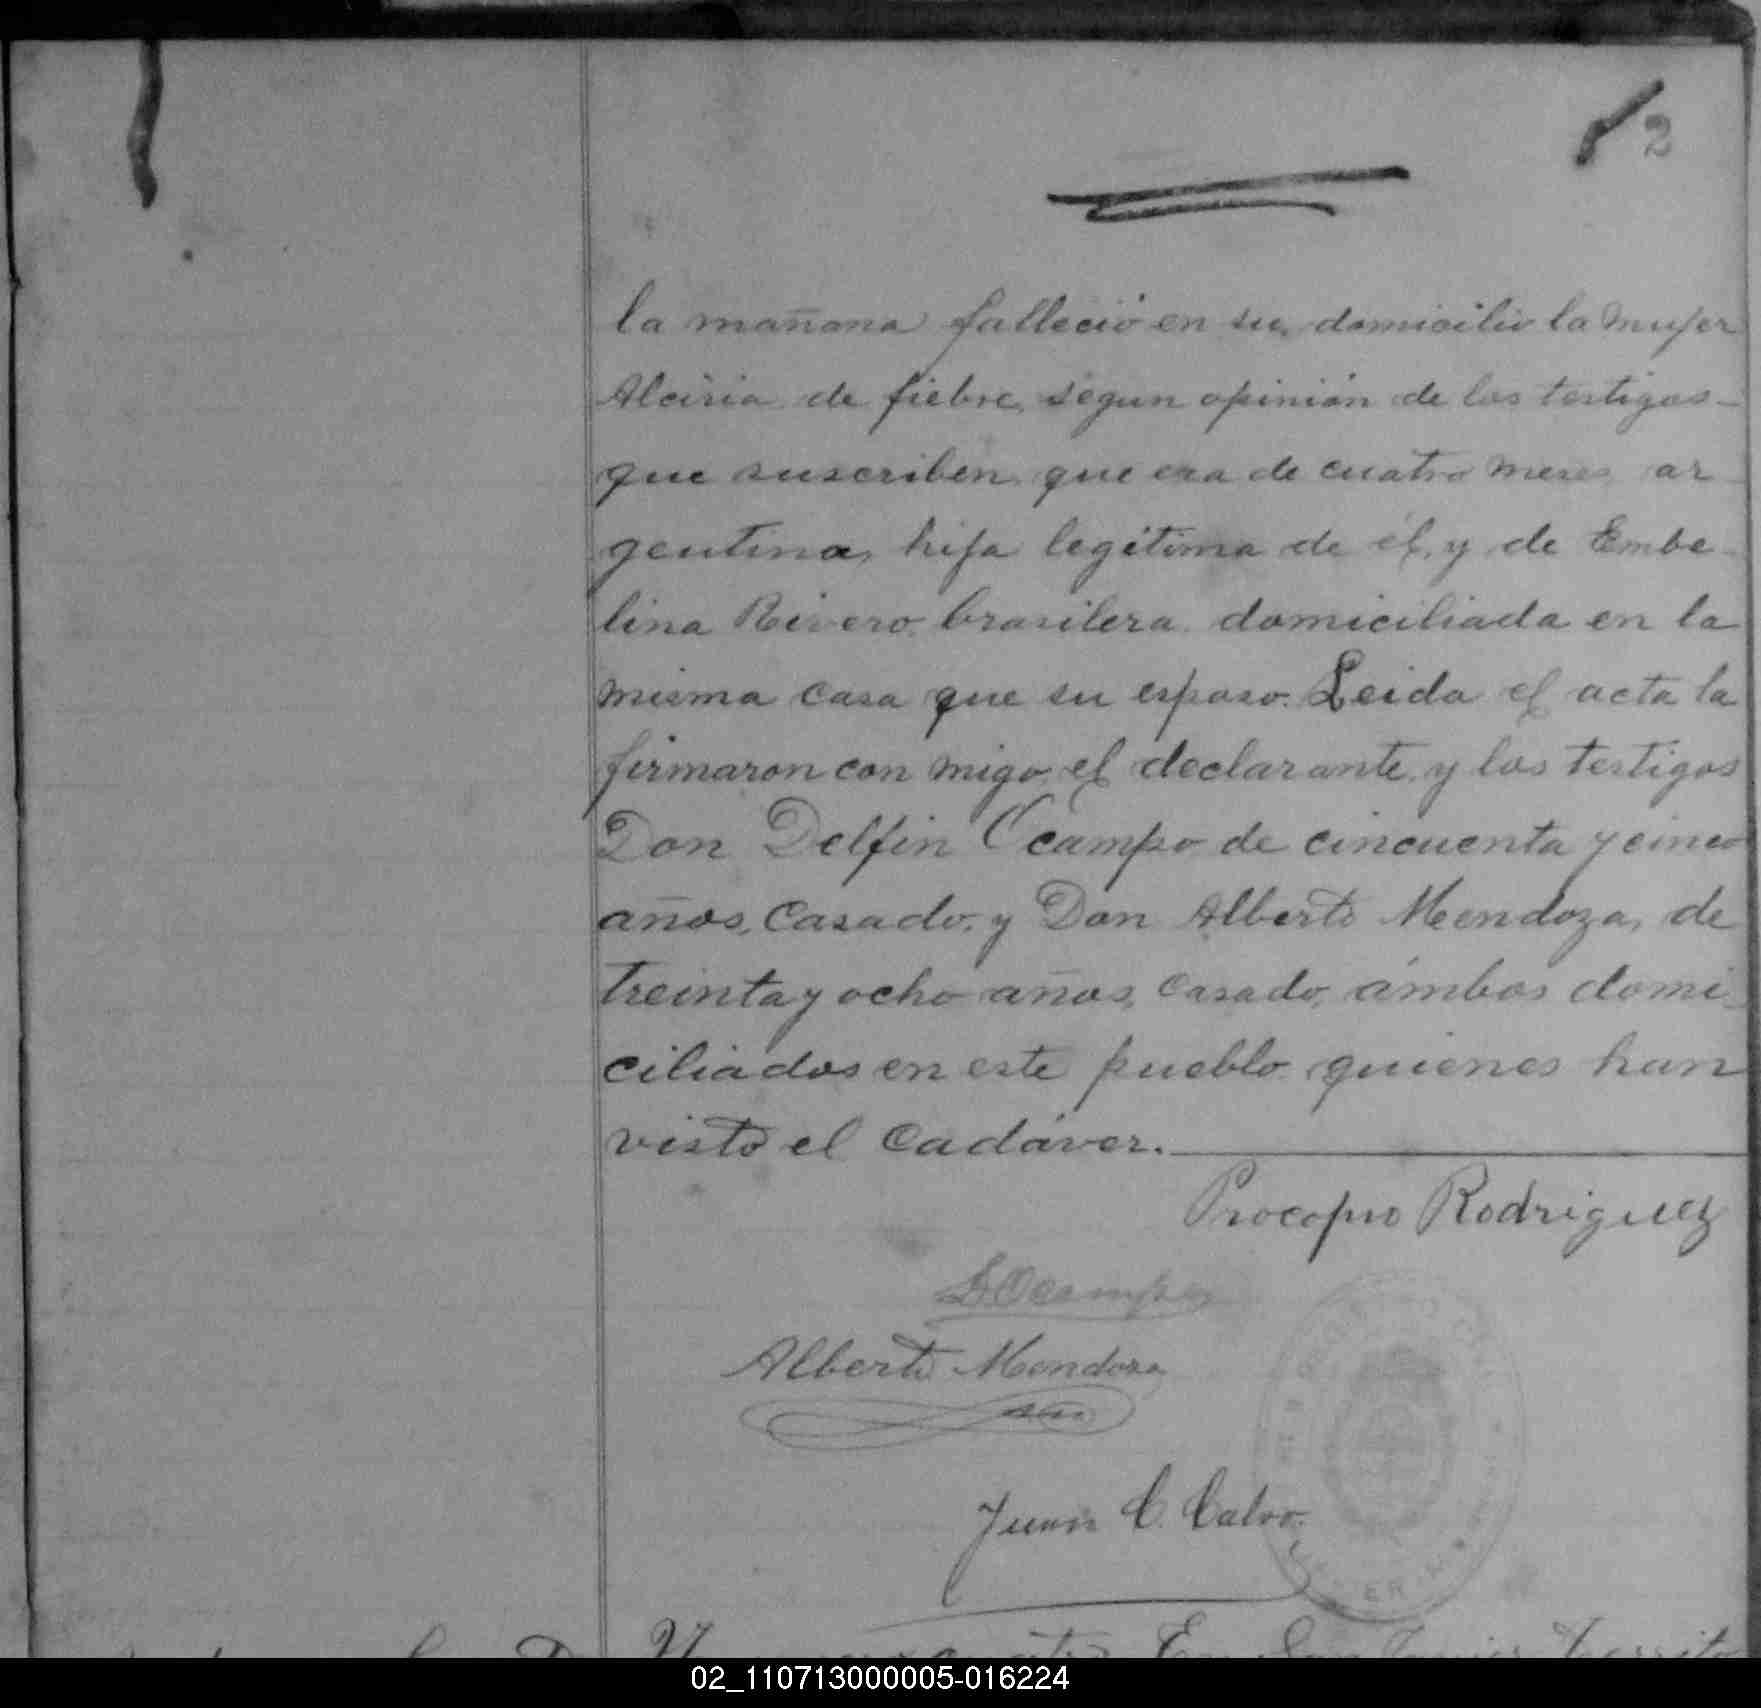 2
la mañana falleció en su domicilio la mujer
Alciria de fiebre, segun opinión de los testigos-
que suscriben, que era de cuatro meses, ar-
gentina, hija legítima de él, y de Embe-
lina Rivero, brasilera, domiciliada en la
misma casa que su esposo. Leida el acta la
firmaron con migo, el declarante, y los testigos
Don Delfin Ocampo de cincuenta y cinco
años, Casado, y Don Alberto Mendoza, de
treinta y ocho años, Casado, ámbos domi-
ciliados en este pueblo quienes han
visto el Cadáver.
Procopio Rodriguez
D Ocampo
Alberto Mendoza
Juan C. Calvo.
cuatro En San Javier Territo
02_110713000005-016224